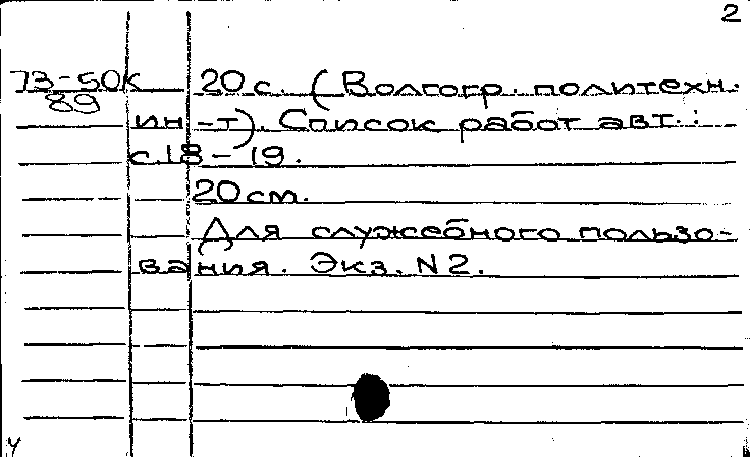 2
73-50к 20 с. (Волгогр. политехн.
89
ин-т). Список работ авт.:
с. 18-19.
20 см.
Для служебного пользо-
вания. Экз. N2.